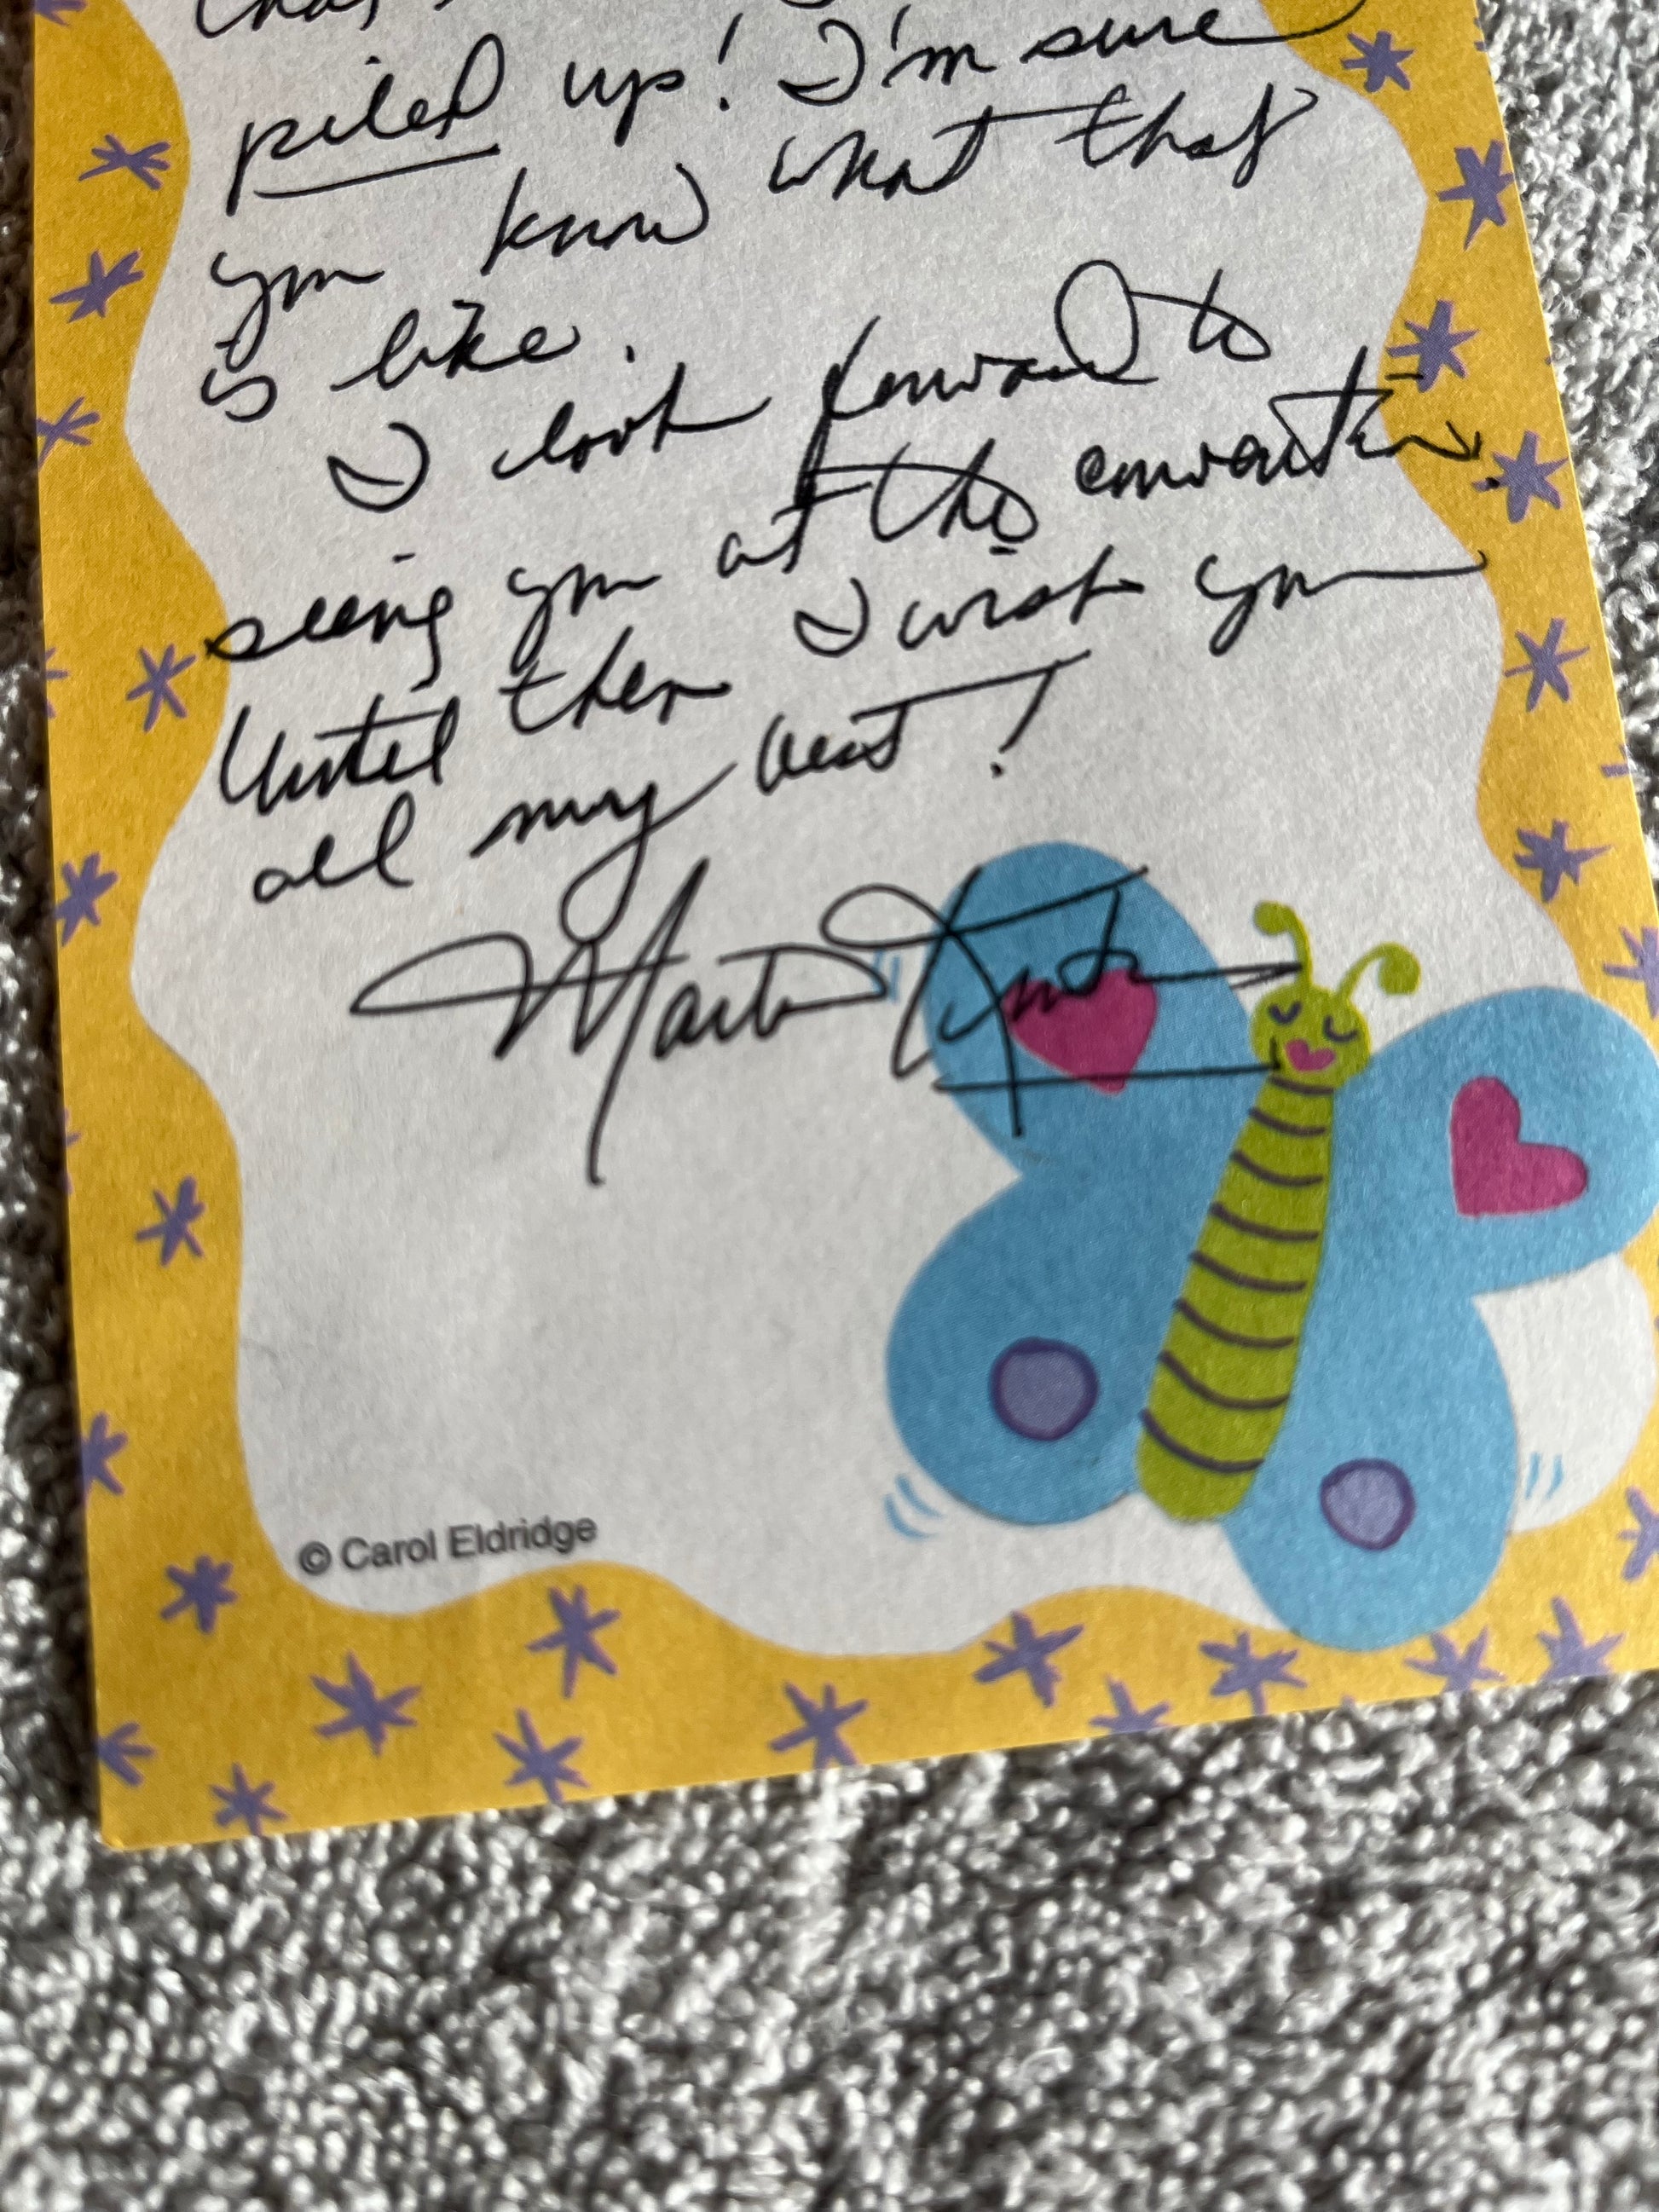 piled up! I'm sure
you know what that
is like.
I look forward to
seeing you at the convention.
Until then I wish you
all my best!
Martin
© Carol Eldridge